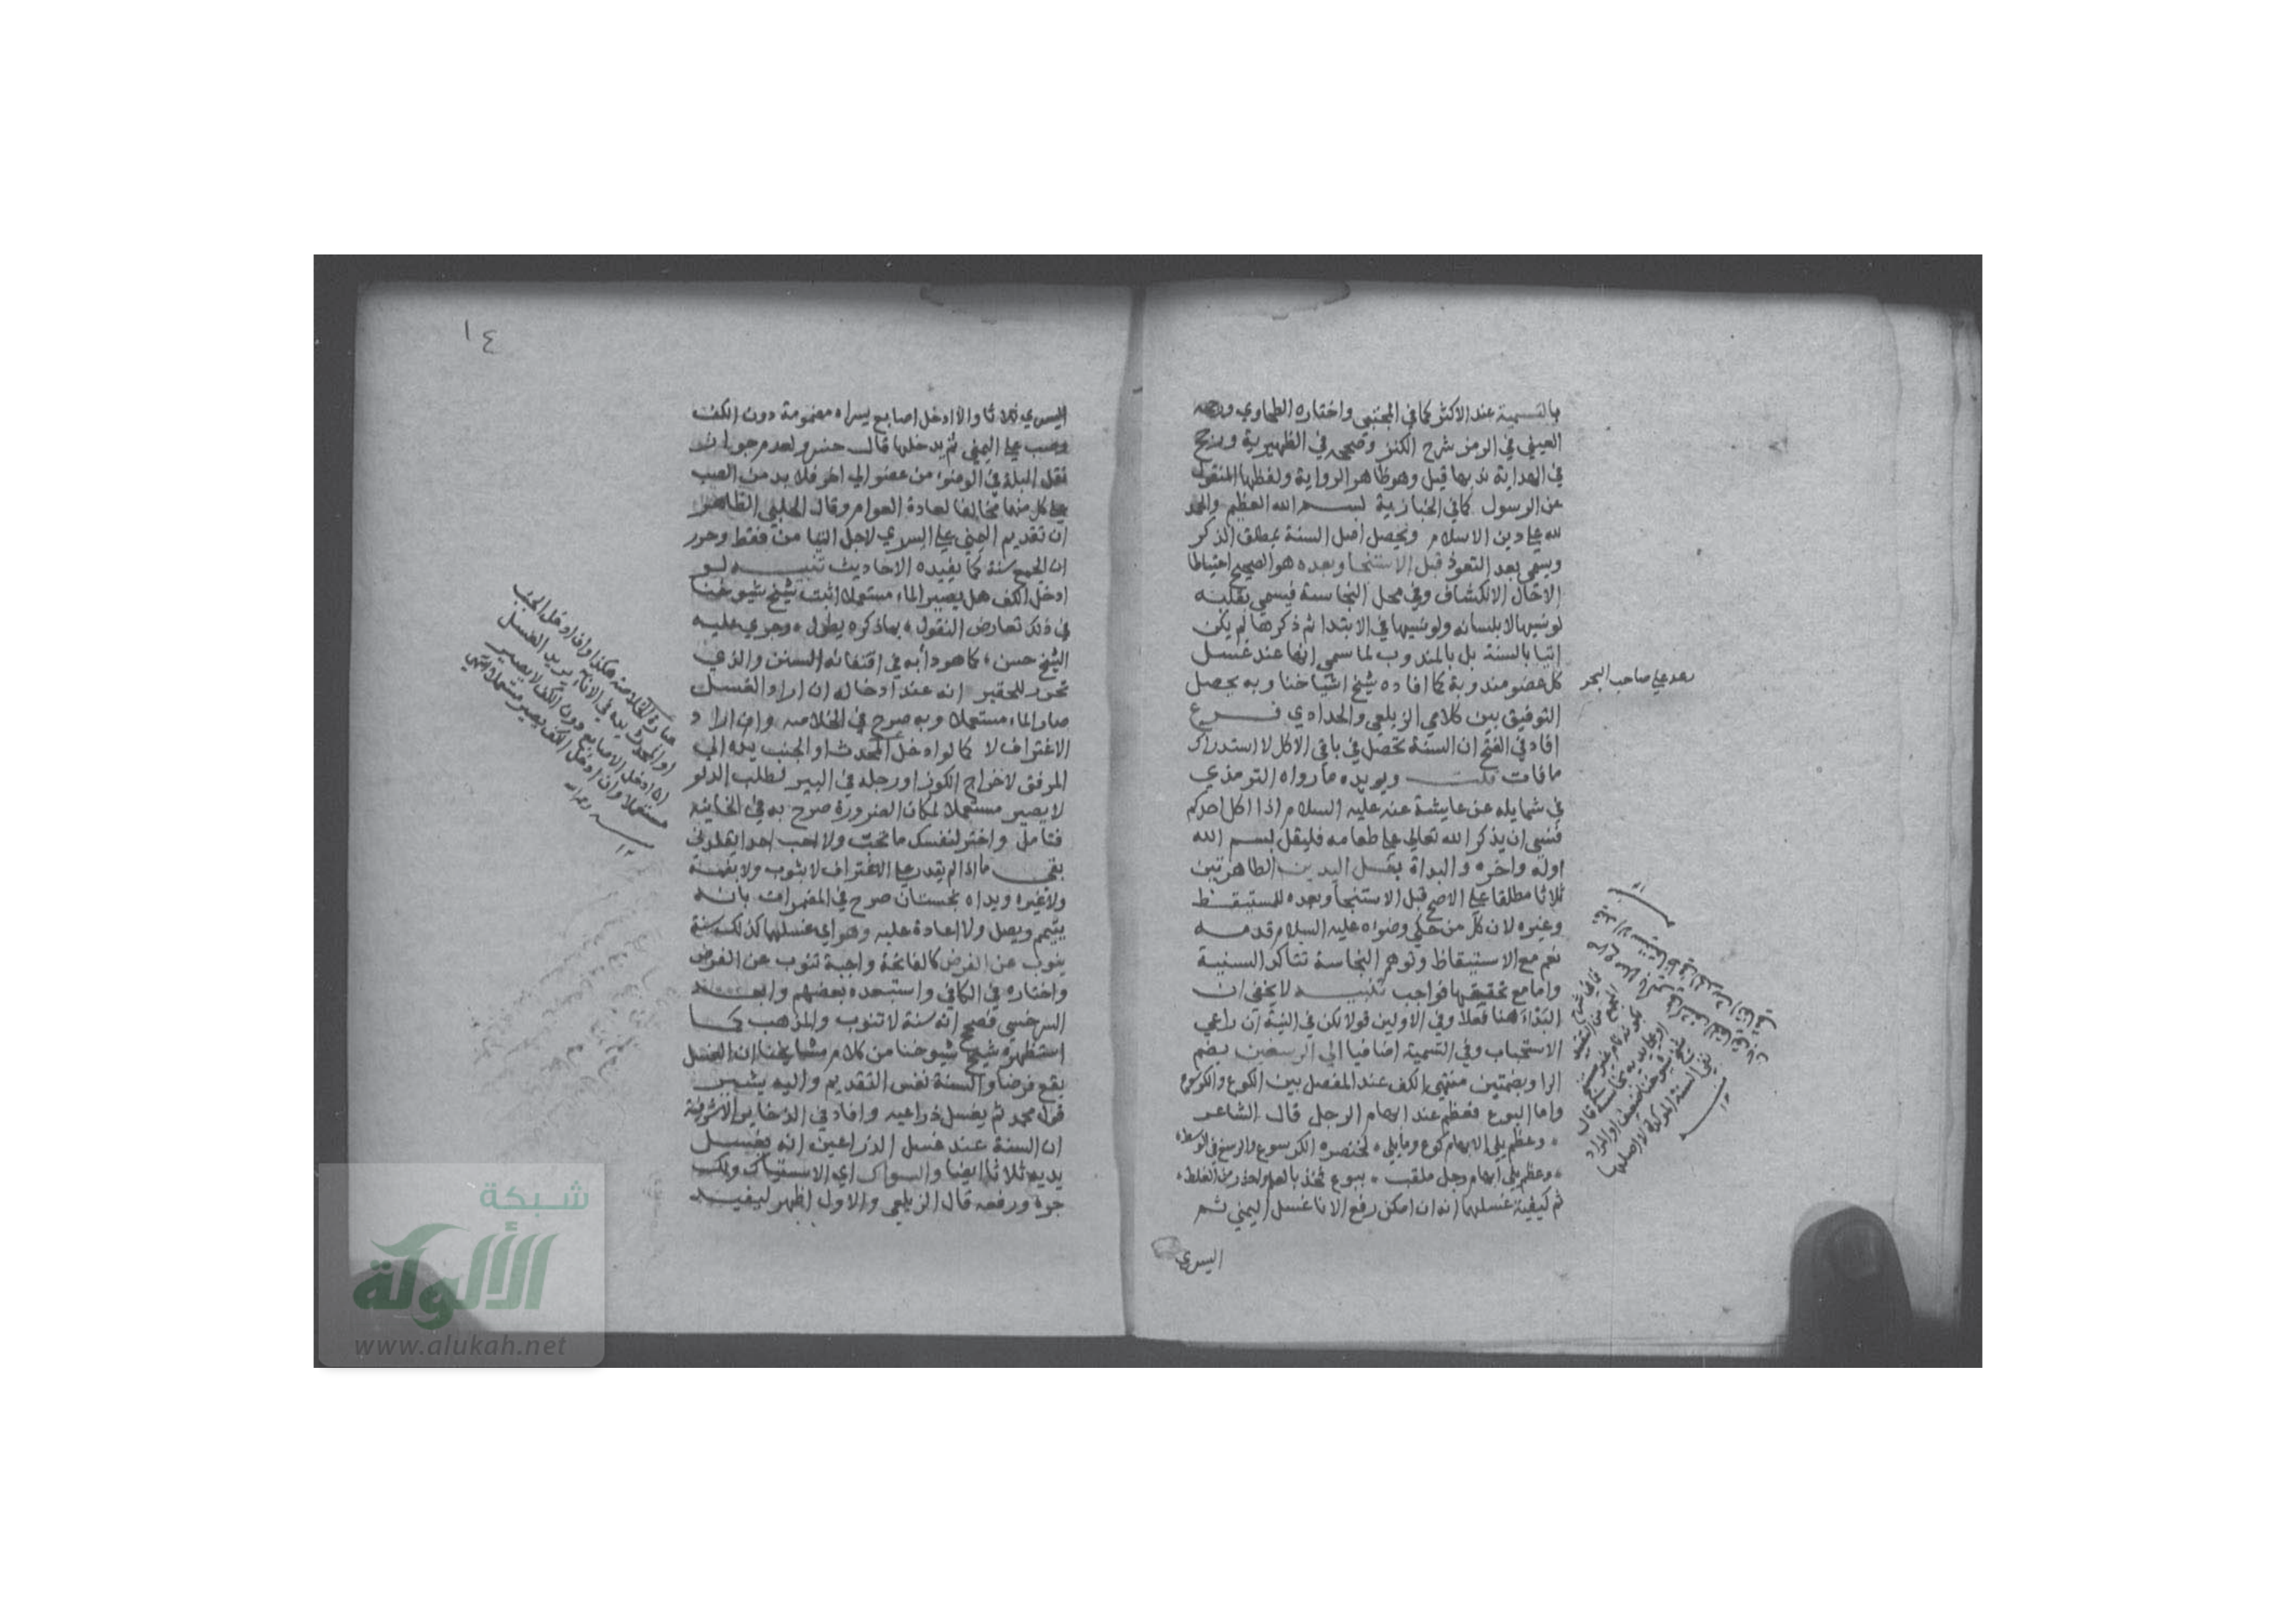 بالتسمية عند الاكثر كما في المجتبي واختاره الطحاوي ورجحه
العيني في الرمز شرح الكنز وصححه في الظهيرية ورجح
في الهداية ندبها قيل وهو ظاهر الرواية ولفظها المنقول
عن الرسول كما في الخبازية بسم الله العظيم والحمد
لله علي دين الاسلام وتحصل اصل السنة بمطلق الذكر
ويسمي بعد التعوذ قبل الاستنجا وبعده هو الصحيح احتياطا
الا حال الانكشاف وفي محل النجاسة فيسمي بقلبه
لو نسيها لا بلسانه ولو نسيها في الابتدا ثم ذكرها لم يكن
اتيا بالسنة بل بالمندوب لما سمي انها عند غسل
كل عضو مندوبة كما افاده شيخ اشياخنا وبه يحصل
التوفيق بين كلامي الزيلعي والحدادي فرع
افاد في الفتح ان السنة تحصل في باقي الاكل لا استدراك
ما فات قلت ويويده ما رواه الترمذي
في شمايله عن عايشة عنه عليه السلام اذا اكل احدكم
فنسي ان يذكر الله تعالي علي طعامه فليقل بسم الله
اوله واخره والبداة بغسل اليدين الطاهرتين
ثلاثا مطلقا علي الاصح قبل الاستنجا وبعده للمستيقظ
وغيره لان كل من حكي وضواه عليه السلام قدمه
نعم مع الاستيقاظ وتوهم النجاسة تتاكد السنية
واما مع تحققها فواجب تنبيه لا يخفي ان
البداة هنا فعلا وفي الاولين قولا لكن في النية ان راعي
الاستحباب وفي التسمية اضافيا الي الرسغين بضم
الرا وبضمتين منتهي الكف عند المفصل بين الكوع والكرسوع
واما البوع فعظم عند ابهام الرجل قال الشاعر
وعظم يلي الابهام كوع وما يلي لخنصره الكرسوع والرسغ في الوسط
وعظم يلي ابهام رجل ملقب ببوع فخذ بالعلم واحذر من الغلط
ثم كيفية غسلها انه ان امكن رفع الانا غسل اليمني ثم
اليسري
رد علي صاحب البحر
١٤
اليسري ثلاثا والا ادخل اصابع يسراه مضمومة دون الكف
وصب علي اليمني ثم يدخلها قال حسن ولعدم جواز
نقل البلة في الوضوء من عضو الي اخر فلا بد من الصب
علي كل منهما مخالفا لعادة العوام وقال الحلبي الظاهر
ان تقديم اليمني علي اليسري لاجل التيامن فقط وحرر
ان الجمع سنة كما يفيده الاحاديث تنبيه لو
ادخل الكف هل يصير الماء مستعملا اثبت شيخ شيوخنا
في ذلك تعارض النقول بما ذكره يطول وجري عليه
الشيخ حسن كما هو دابه في اقتفائه السنن والذي
تحرر للحقير انه عند ادخاله ان اراد الغسل
صار الماء مستعملا وبه صرح في الخلاصه وان اراد
الاغتراف لا كما لو ادخل المحدث او الجنب يده الي
المرفق لاخراج الكوز او رجله في البير لطلب الدلو
لا يصير مستعملا لمكان الضرورة صرح به في الخانيه
فتامل واختر لنفسك ما تحب ولا احب احدا يقلدني
بقي ما اذا لم يقدر علي الاغتراف لا بثوب ولا بفمه
ولا غيره ويداه نجستان صرح في المضمرات بانه
يتيمم ويصل ولا اعادة عليه وهو اي غسلهما كذلك سنة
ينوب عن الفرض كالفاتحة واجبة تنوب عن الفرض
واختاره في الكافي واستبعده بعضهم وابعد
السرخسي فصحح انه سنة لا تنوب والمذهب كما
استظهره شيخ شيوخنا من كلام مشايخنا ان الغسل
يقع فرضا والسنة نفس التقديم واليه يشير
قول محمد ثم يغسل ذراعيه وافاد في الذخاير الاشرفية
ان السنة عند غسل الذراعين انه يغسل
يديه ثلاثا ايضا والسواك اي الاستياك ولك
جره ورفعه قال الزيلعي والاول اظهر ليفيد
عبارة الخلاصة هكذا وان ادخل الجنب
او المحدث يده في الاناء يريد الغسل
ان ادخل الاصابع دون الكف لا يصير
مستعملا وان ادخل الكف يصير مستعملا انتهي
شبكة
الألوكة
www.alukah.net